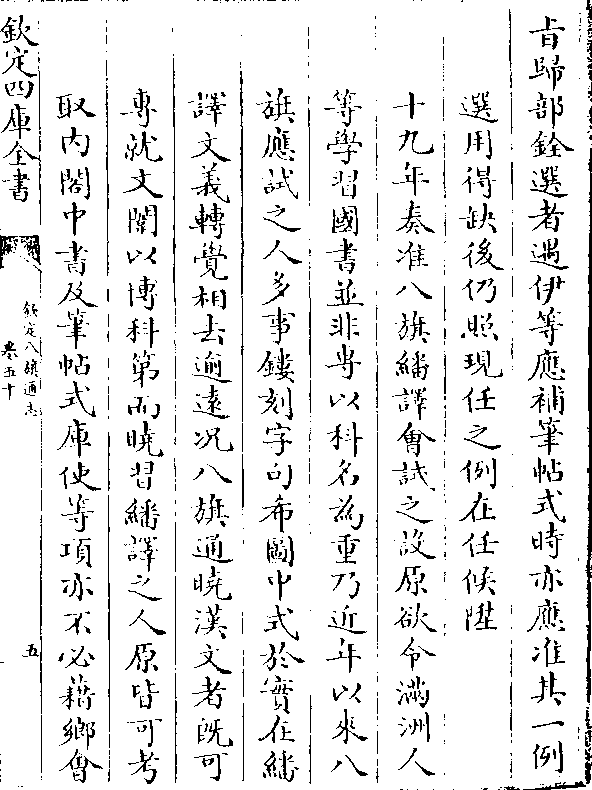 旨歸部銓選者遇伊等應補筆帖式時亦應准其一例
選用得缺後仍照現任之例在任候陞
十九年奏准八旗繙譯會試之設原欲令滿洲人
等學習國書並非專以科名為重乃近年以來八
旗應試之人多事鏤刻字句希圖中式於實在繙
譯文義轉覺相去逾遠况八旗通曉漢文者既可
專就文闈以博科第而曉習繙譯之人原皆可考
取内閣中書及筆帖式庫使等項亦不必藉鄉會
欽定四庫全書
欽定八旗通志
卷五十
五